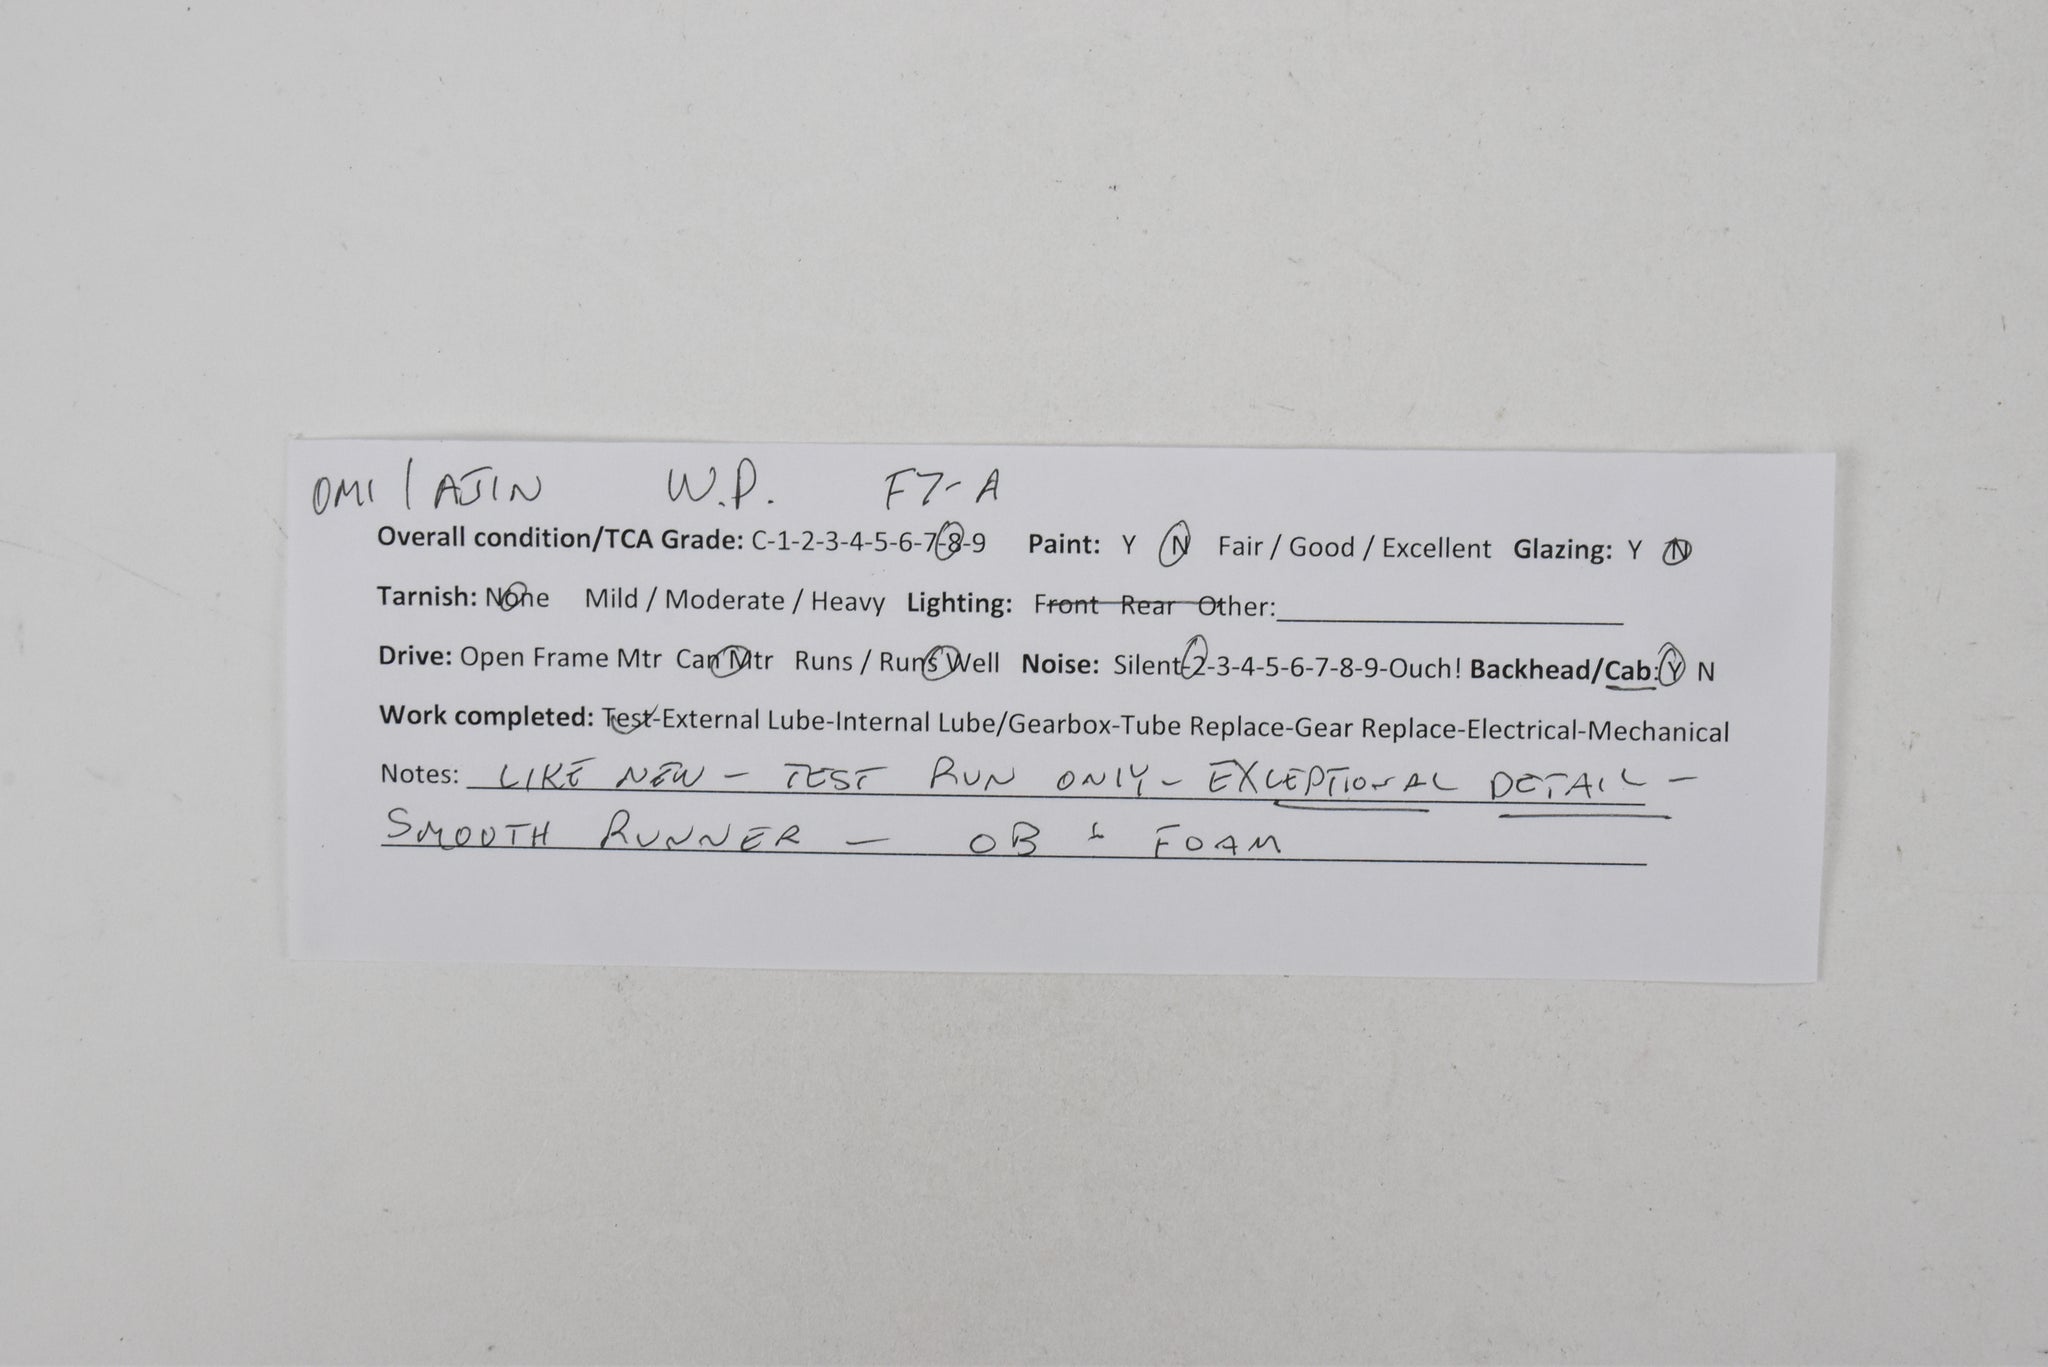 OMI / AJIN W.P. F7-A
Overall condition/TCA Grade: C-1-2-3-4-5-6-7-8-9 Paint: Y N Fair / Good / Excellent Glazing: Y N
Tarnish: None Mild / Moderate / Heavy Lighting: Front Rear Other:
Drive: Open Frame Mtr Can Mtr Runs / Runs Well Noise: Silent-2-3-4-5-6-7-8-9-Ouch! Backhead/Cab: Y N
Work completed: Test-External Lube-Internal Lube/Gearbox-Tube Replace-Gear Replace-Electrical-Mechanical
Notes: LIKE NEW - TEST RUN ONLY - EXCEPTIONAL DETAIL -
SMOOTH RUNNER - OB & FOAM